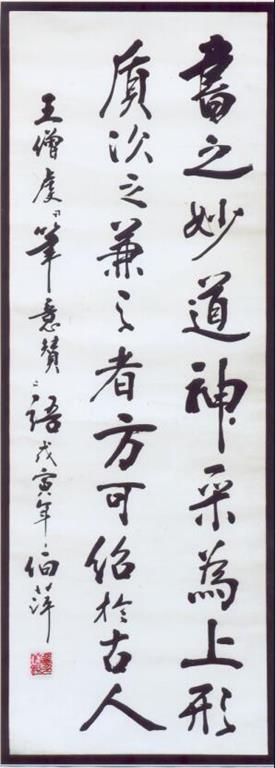 書之妙道神采為上形
质次之兼之者方可绍於古人
王僧虔筆意赞之语戊寅年伯萍